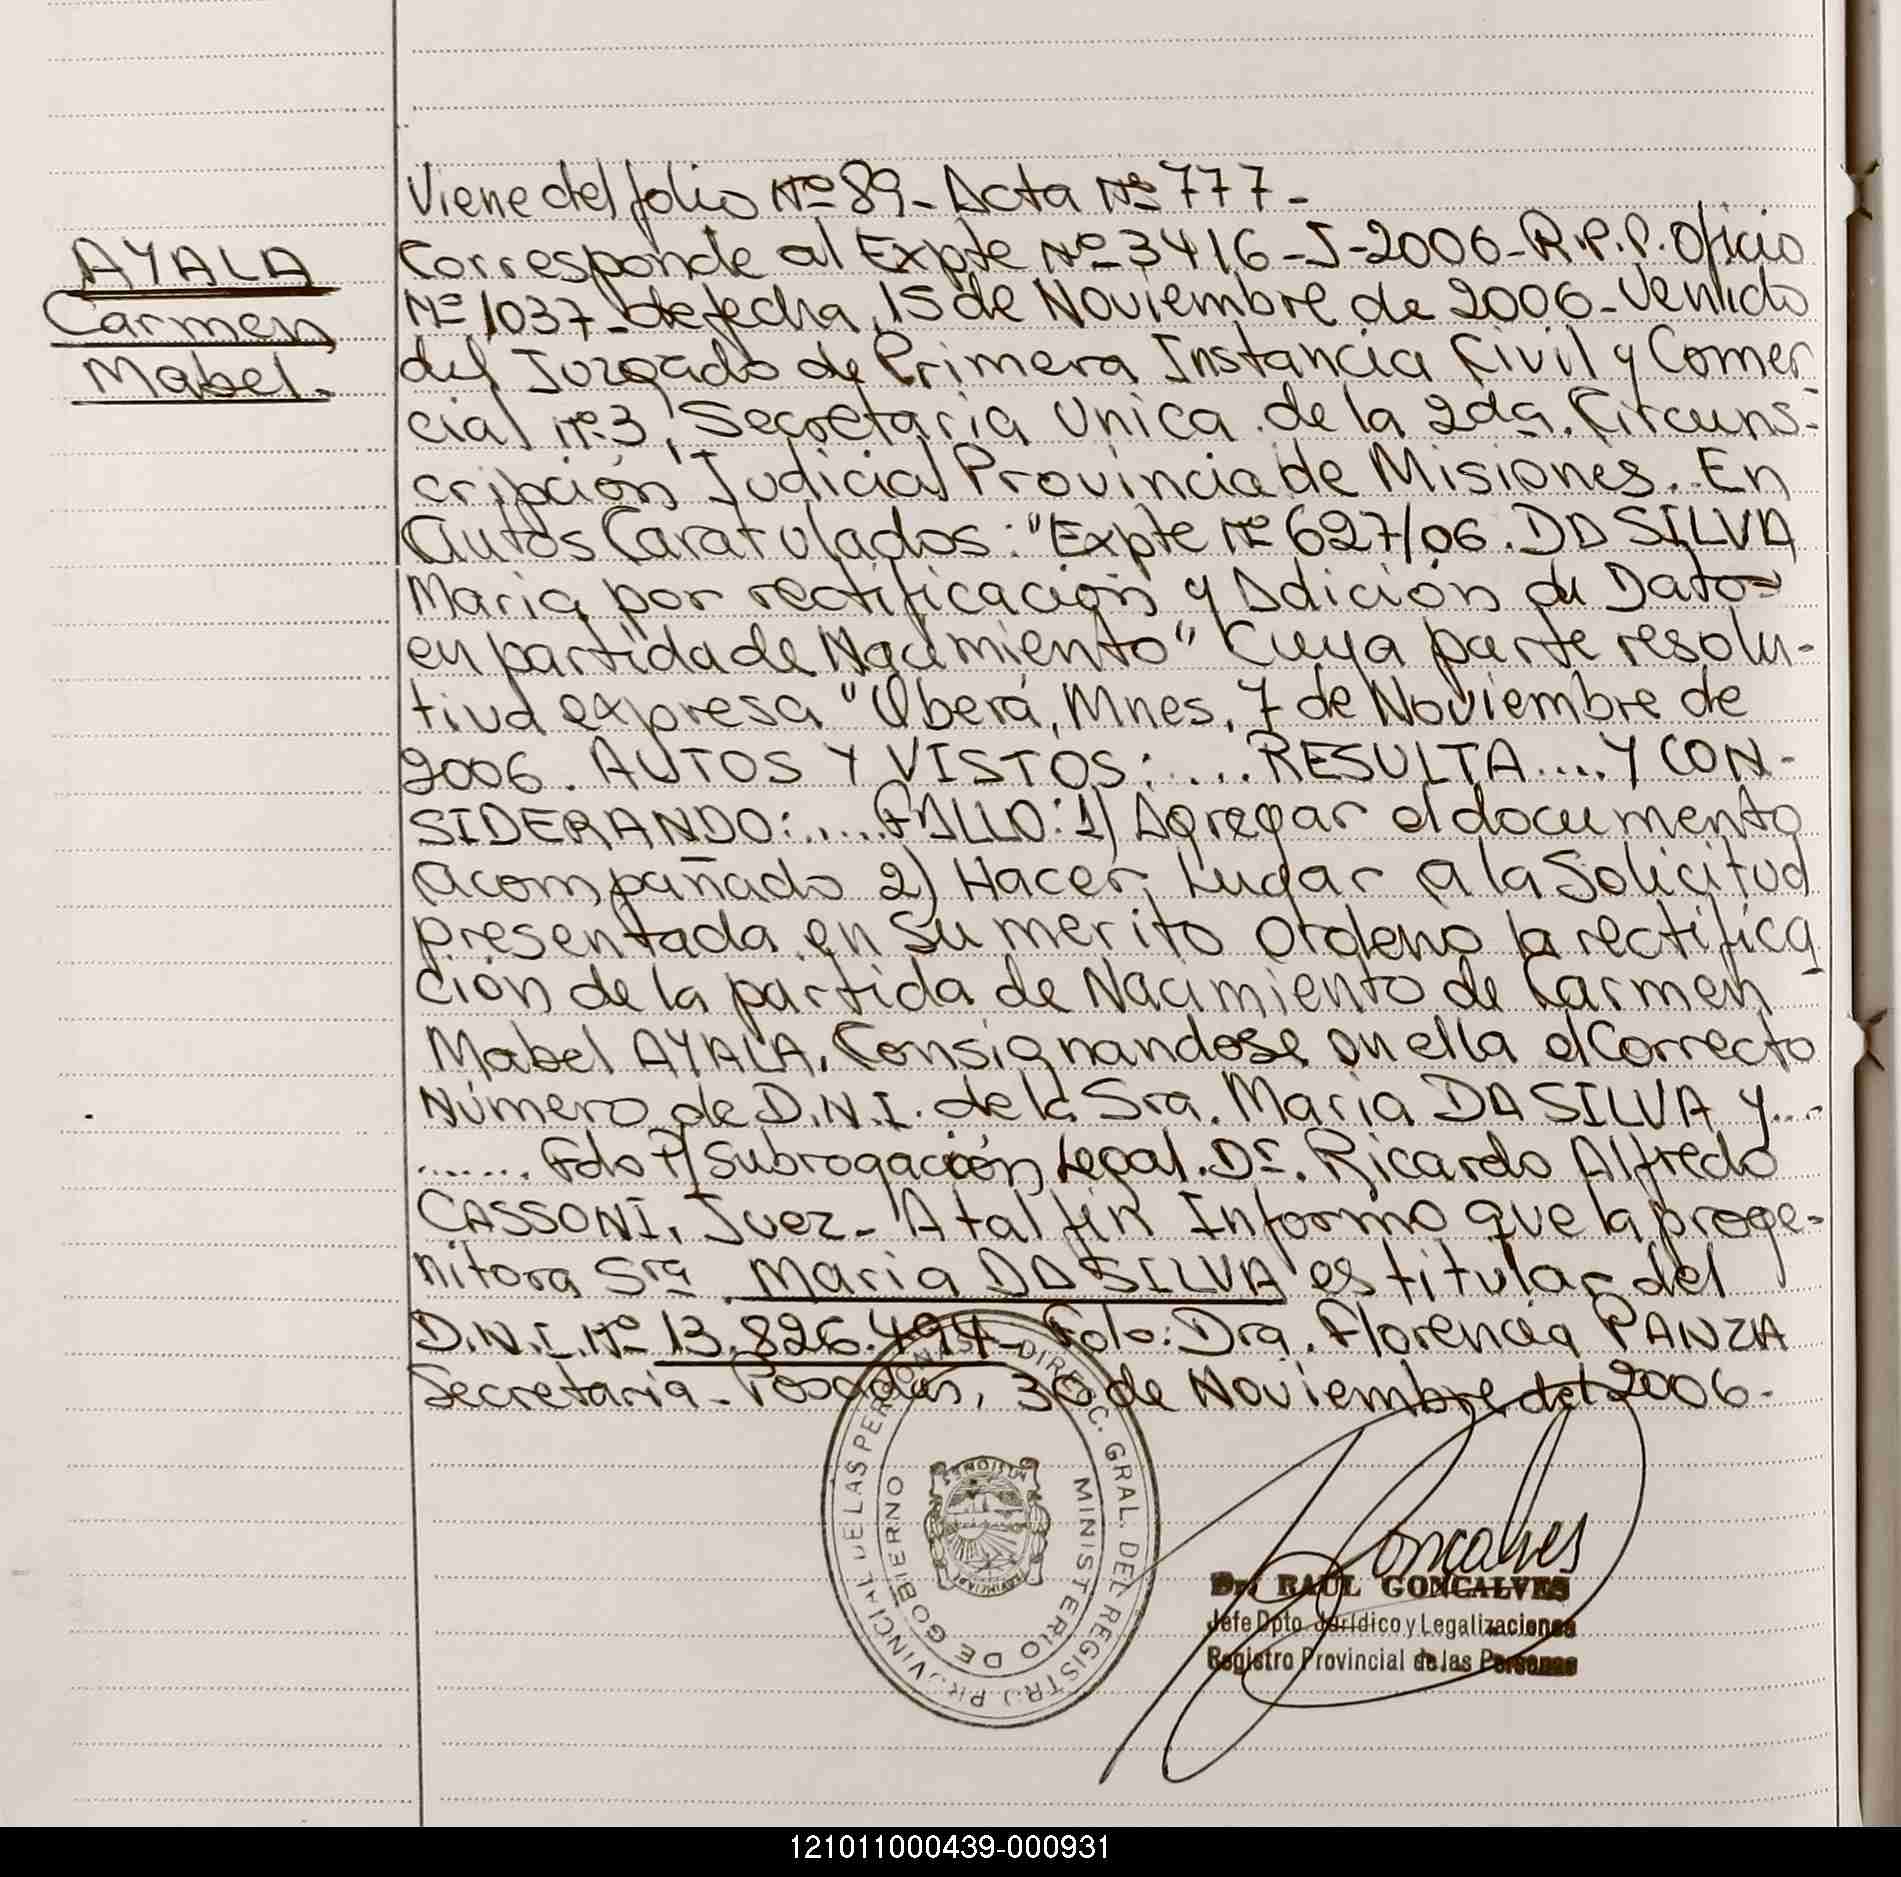 Viene del folio Nº 89- Acta Nº 777-
AYALA
Carmen
Mabel.
Corresponde al Expte Nº 3416-J-2006-R.P.P. Oficio
Nº 1037- de fecha, 15 de Noviembre de 2006- Venido
del Juzgado de Primera Instancia Civil y Comer
cial Nº 3, Secretaria Unica de la 2da. Circuns-
cripción Judicial Provincia de Misiones. En
Autos Caratulados: "Expte Nº 627/06. DA SILVA
Maria por rectificación y Adición de Datos
en partida de Nacimiento" Cuya parte resolu-
tiva expresa "Oberá, Mnes, 7 de Noviembre de
2006. AUTOS Y VISTOS: .... RESULTA .... Y CON-
SIDERANDO: ..... FALLO: 1) Agregar el documento
acompañado 2) Hacer Lugar a la Solicitud
presentada en Su merito Ordeno la rectifica
ción de la partida de Nacimiento de Carmen
Mabel AYALA, Consignandose en ella el Correcto
Número de D.N.I. de la Sra. Maria DA SILVA y ....
....... Fdo P/ Subrogación Legal. Dr. Ricardo Alfredo
CASSONI, Juez- A tal fin Informo que la proge-
nitora Sra Maria DA SILVA es titular del
D.N.I. Nº 13.826.494- Fdo: Dra. Florencia PANZA
Secretaria- Posadas, 30 de Noviembre del 2006-
DIRECC. GRAL. DEL REGISTRO PROVINCIAL DE LAS PERSONAS
MINISTERIO DE GOBIERNO
MISIONES
PROVINCIA DE
Goncalves
Dr. RAUL GONCALVES
Jefe Dpto. Jurídico y Legalizaciones
Registro Provincial de las Personas
121011000439-000931